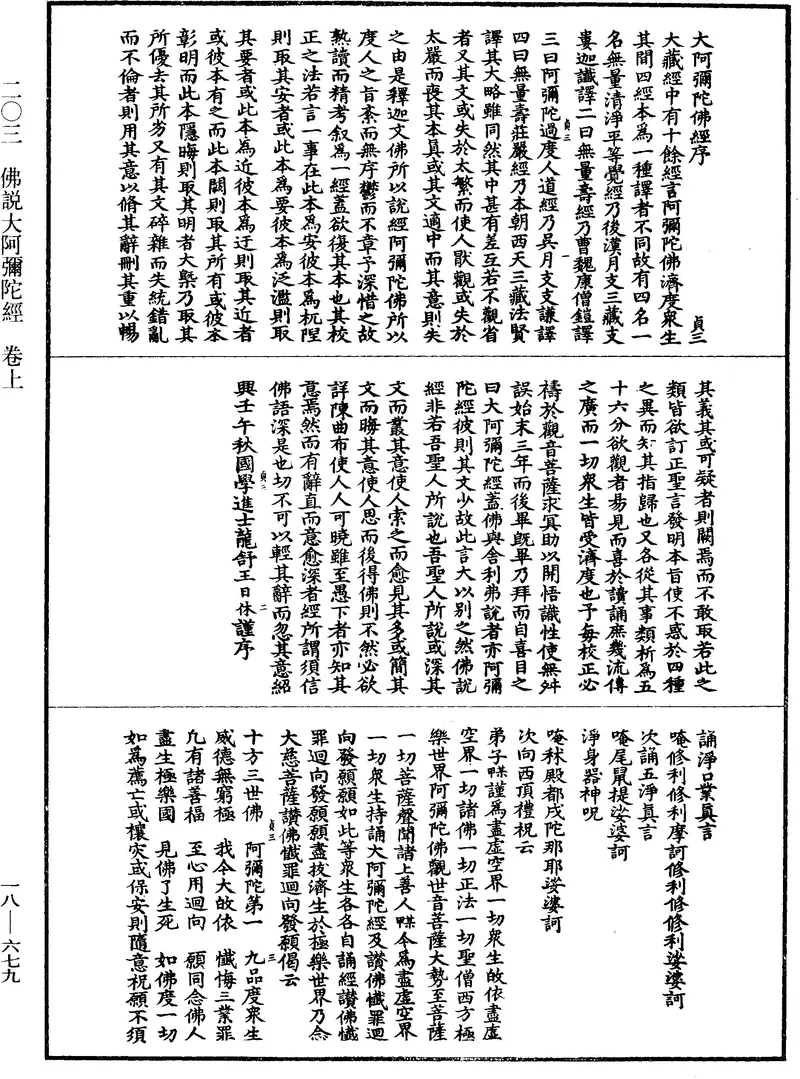 二〇三　佛説大阿彌陀經　卷上
一八—六七九
大阿彌陀佛經序　貞三
大藏經中有十餘經言阿彌陀佛濟度衆生
其間四經本爲一種譯者不同故有四名一
名無量清淨平等覺經乃後漢月支三藏支
婁迦讖譯二曰無量壽經乃曹魏康僧鎧譯
三曰阿彌陀過度人道經乃吴月支支謙譯
四曰無量壽莊嚴經乃本朝西天三藏法賢
譯其大略雖同然其中甚有差互若不觀省
者又其文或失於太繁而使人猒觀或失於
太嚴而喪其本真或其文適中而其意則失
之由是釋迦文佛所以説經阿彌陀佛所以
度人之旨紊而無序鬱而不章予深惜之故
熟讀而精考叙爲一經蓋欲復其本也其校
正之法若言一事在此本爲安彼本爲杌隉
則取其安者或此本爲要彼本爲泛濫則取
其要者或此本爲近彼本爲迂則取其近者
或彼本有之而此本闕則取其所有或彼本
彰明而此本隱晦則取其明者大槩乃取其
所優去其所劣又有其文碎雜而失統錯亂
而不倫者則用其意以脩其辭刪其重以暢
其義其或可疑者則闕焉而不敢取若此之
類皆欲訂正聖言發明本旨使不惑於四種
之異而知其指歸也又各從其事類析爲五
十六分欲觀者易見而喜於讀誦庶幾流傳
之廣而一切衆生皆受濟度也予每校正必
禱於觀音菩薩求冥助以開悟識性使無舛
誤始末三年而後畢既畢乃拜而自喜目之
曰大阿彌陀經蓋佛與舍利弗説者亦阿彌
陀經彼則其文少故此言大以别之然佛説
經非若吾聖人所説也吾聖人所説或深其
文而叢其意使人索之而愈見其多或簡其
文而晦其意使人思而後得佛則不然必欲
詳陳曲布使人人可曉雖至愚下者亦知其
意焉然而有辭直而意愈深者經所謂須信
佛語深是也切不可以輕其辭而忽其意紹
興壬午秋國學進士龍舒王日休謹序
誦淨口業真言
唵修利修利摩訶修利修修利娑婆訶
次誦五淨真言
唵尾鼠提娑婆訶
淨身器神呪
唵秫殿都戌陀那耶娑婆訶
次向西頂禮祝云
弟子ム謹爲盡虚空界一切衆生皈依盡虚
空界一切諸佛一切正法一切聖僧西方極
樂世界阿彌陀佛觀世音菩薩大勢至菩薩
一切菩薩聲聞諸上善人ム今爲盡虚空界
一切衆生持誦大阿彌陀經及讚佛懺罪迴
向發願願如此等衆生各各自誦經讚佛懺
罪迴向發願願盡拔濟生於極樂世界乃念
大慈菩薩讚佛懺罪迴向發願偈云
十方三世佛　阿彌陀第一　九品度衆生
威德無窮極　我今大皈依　懺悔三業罪
凢有諸善福　至心用迴向　願同念佛人
盡生極樂國　見佛了生死　如佛度一切
如爲薦亡或禳灾或保安則隨意祝願不須